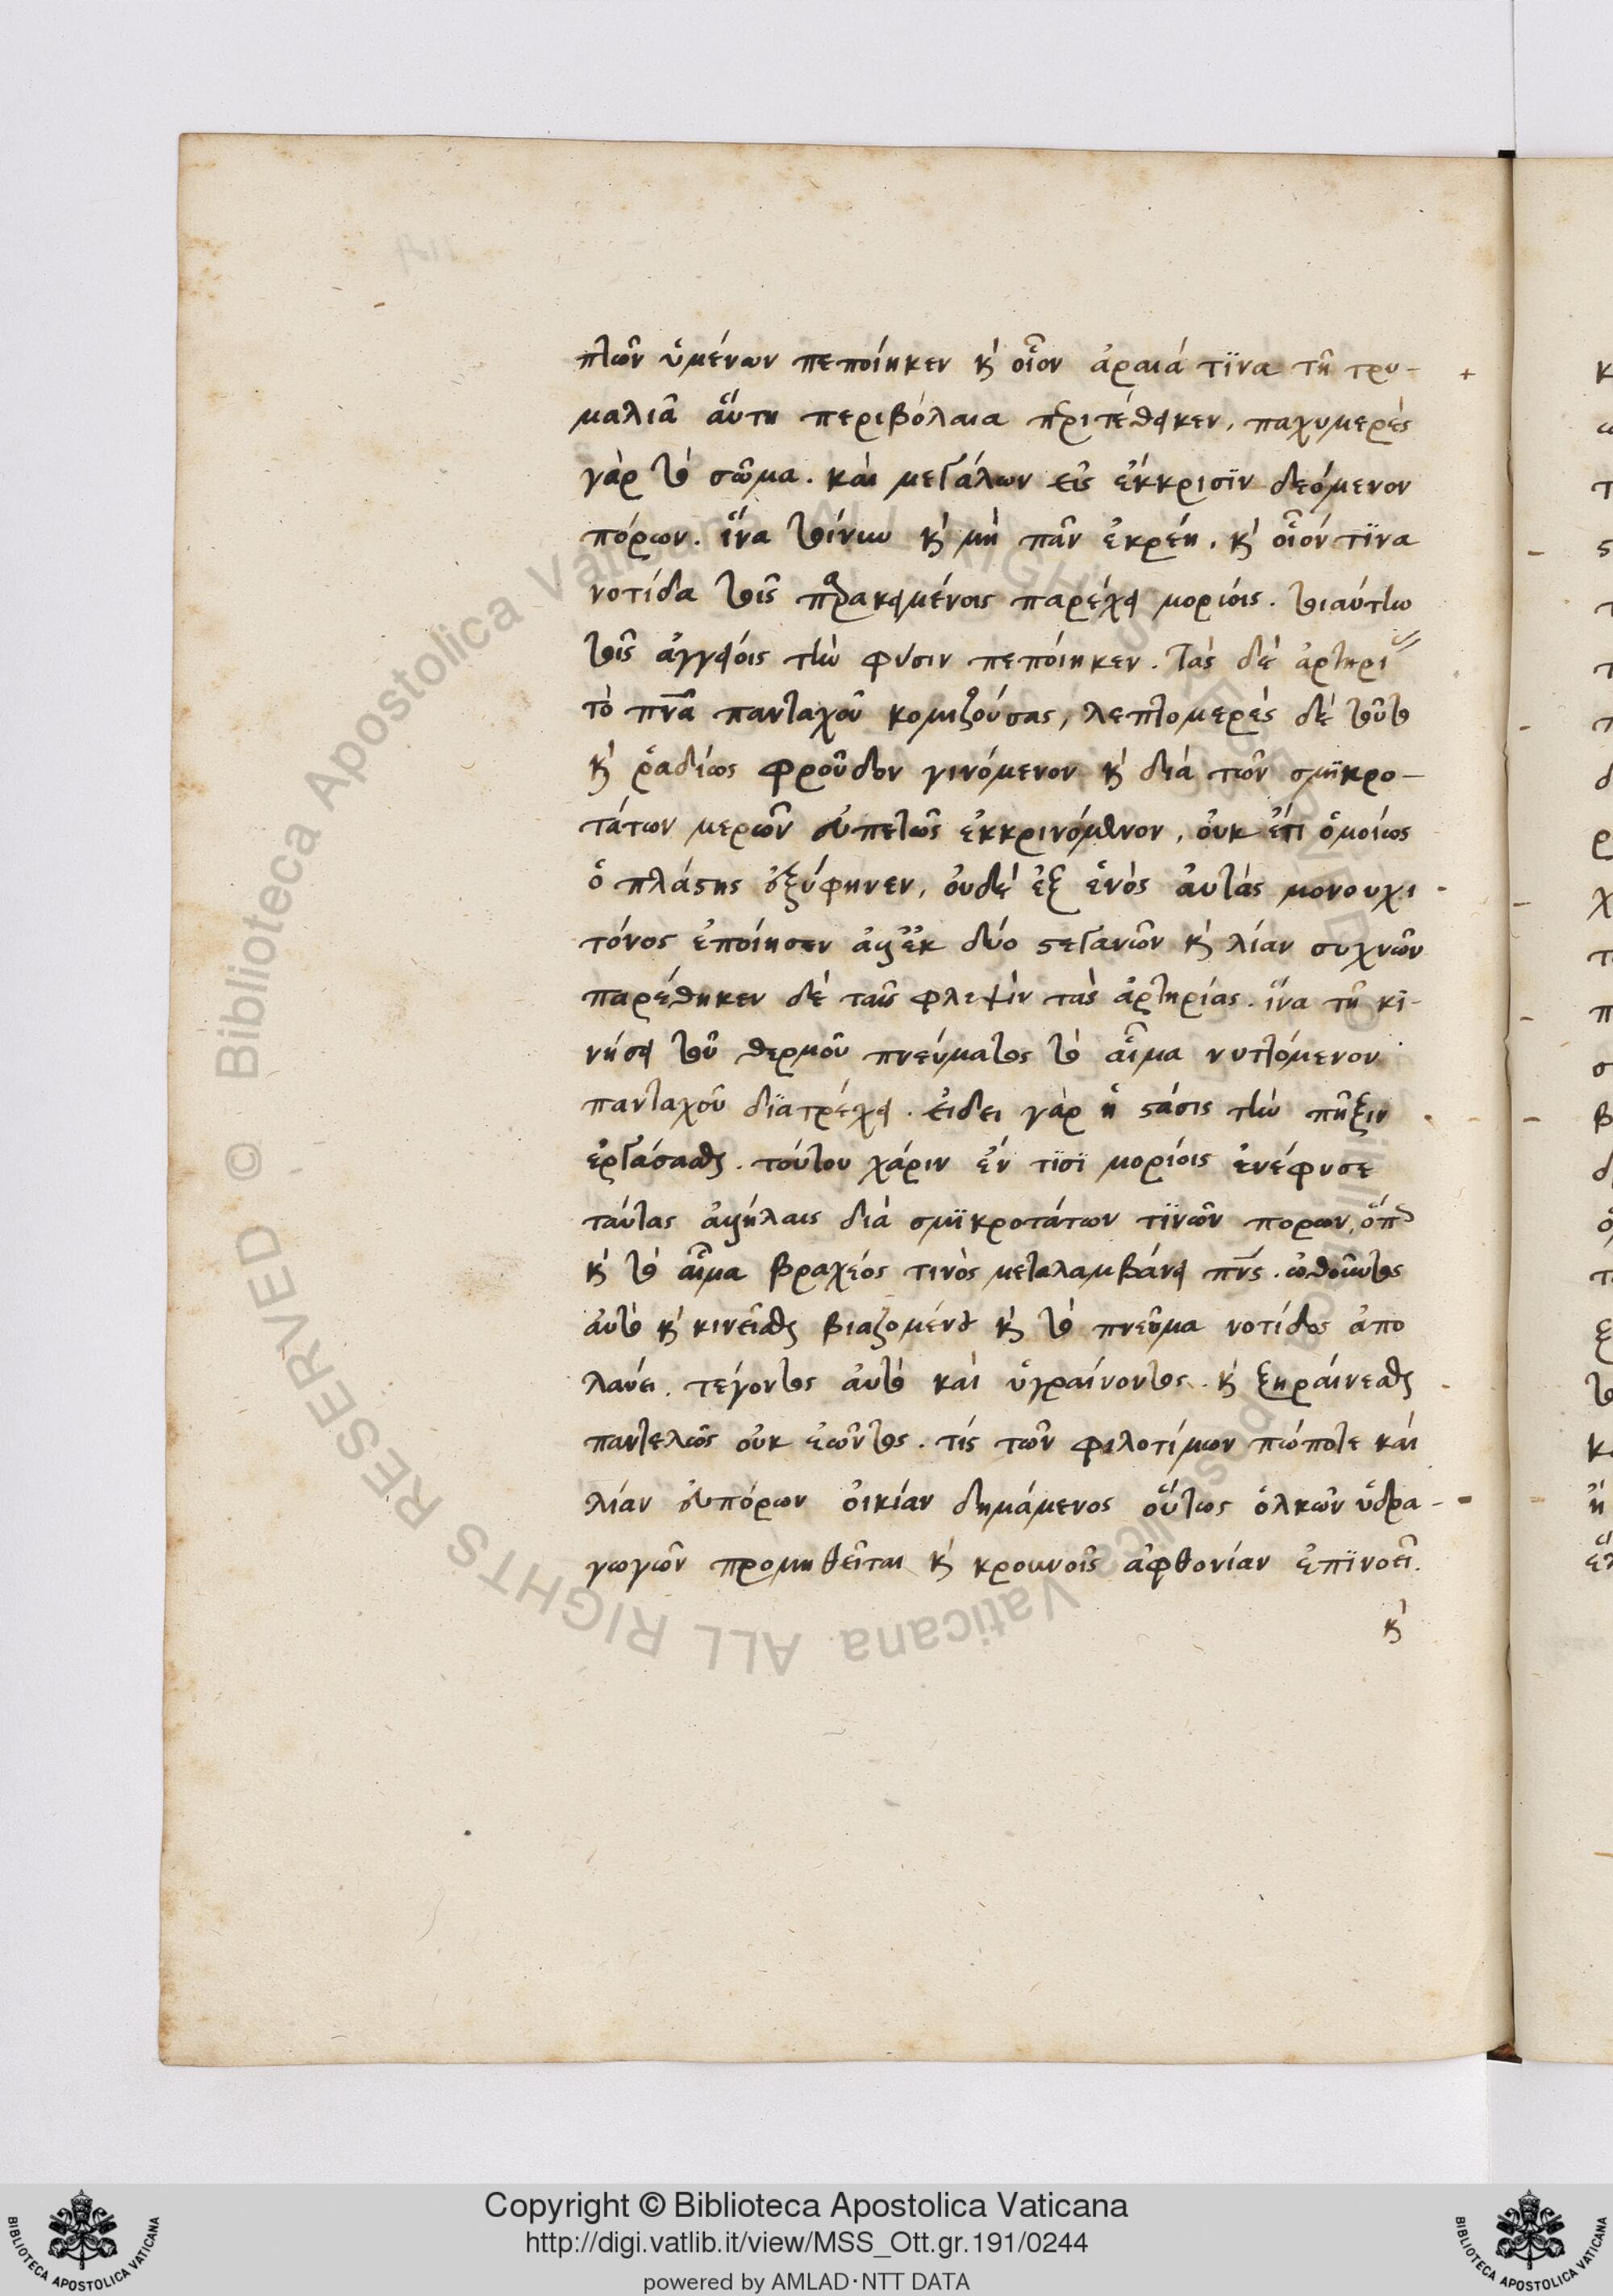 πτῶν ὑμένων πεποίηκεν κ οἷον ἀραιά τϊνα τῆ τρυ-
μαλιᾶ αὕτη περιβόλαια πριτέθεικεν, παχυμερὲς
γὰρ τὸ σῶμα. καὶ μεγάλων εἰς ἔκκρισϊν δεόμενον
πόρων. ἵνα τοίνυν κ μὴ πᾶν ἐκρέη. κ οἷόν τϊνα
νοτίδα τοῖς παρακειμένοις παρέχει μορίοις. τοιαύτην
τοῖς ἀγγείοις τὴν φύσιν πεπόιηκεν. Τὰς δὲ ἀρτηρί
τὸ πνᾶ πανταχοῦ κομιζούσας, λεπτομερὲς δὲ τοῦτο
κ ῥαδίως φροῦδον γινόμενον κ διὰ τῶν σμϊκρο-
τάτων μερῶν εὐπετῶς ἐκκρινόμενον, οὐκ ἔτι ὁμοίως
ὁ πλάστης ἐξύφηνεν, οὐδὲ ἐξ ἑνὸς αὐτὰς μονουχι
τόνος ἐποίησεν ἀλλ' ἐκ δύο στεγανῶν κ λίαν συχνῶν
παρέθηκεν δὲ ταῖς φλεψὶν τὰς ἀρτηρίας. ἵνα τῆ κι-
νήσει τοῦ θερμοῦ πνεύματος τὸ αἷμα νυττόμενον
πανταχοῦ διατρέχει. ἔιδει γὰρ ἡ στάσις τὴν πῆξιν
ἐργάσασθαι. τούτου χάριν ἐν τϊσϊ μορίοις ἐνέφυσε
ταύτας ἀλλήλαις διὰ σμϊκροτάτων τϊνῶν πορων, ὅπ
κ τὸ αἷμα βραχέος τινὸς μεταλαμβάνει πνς. ὠθοῦντος
αὐτὸ κ κινεῖσθαι βιαζομένου κ τὸ πνεῦμα νοτίδος ἀπο
λαύει. τέγοντος αὐτὸ καὶ ὑγραίνοντος. κ ξηραίνεσθαι
παντελῶς οὐκ ἐῶντος. τίς τῶν φιλοτίμων πώποτε καὶ
λίαν εὐπόρων οἰκίαν δημάμενος οὕτως ὁλκῶν ὑδρα-
γωγῶν προμηθεῖται κ κρουνοῖς ἀφθονίαν ἐπϊνοεῖ.
κ
Copyright © Biblioteca Apostolica Vaticana
http://digi.vatlib.it/view/MSS_Ott.gr.191/0244
powered by AMLAD·NTT DATA